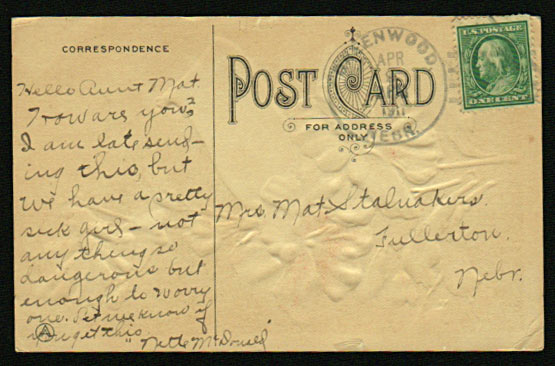 CORRESPONDENCE
POST CARD
FOR ADDRESS
ONLY
ENWOOD
APR
1911
NEBR.
U.S. POSTAGE
ONE CENT
Hello Aunt Mat.
How are you?
I am late send-
ing this, but
we have a pretty
sick girl - not
any thing so
dangerous but
enough to worry
one. Let me know if
you get this
" Nette McDonald
Mrs Mat Stalnakers.
Fullerton.
Nebr.
A